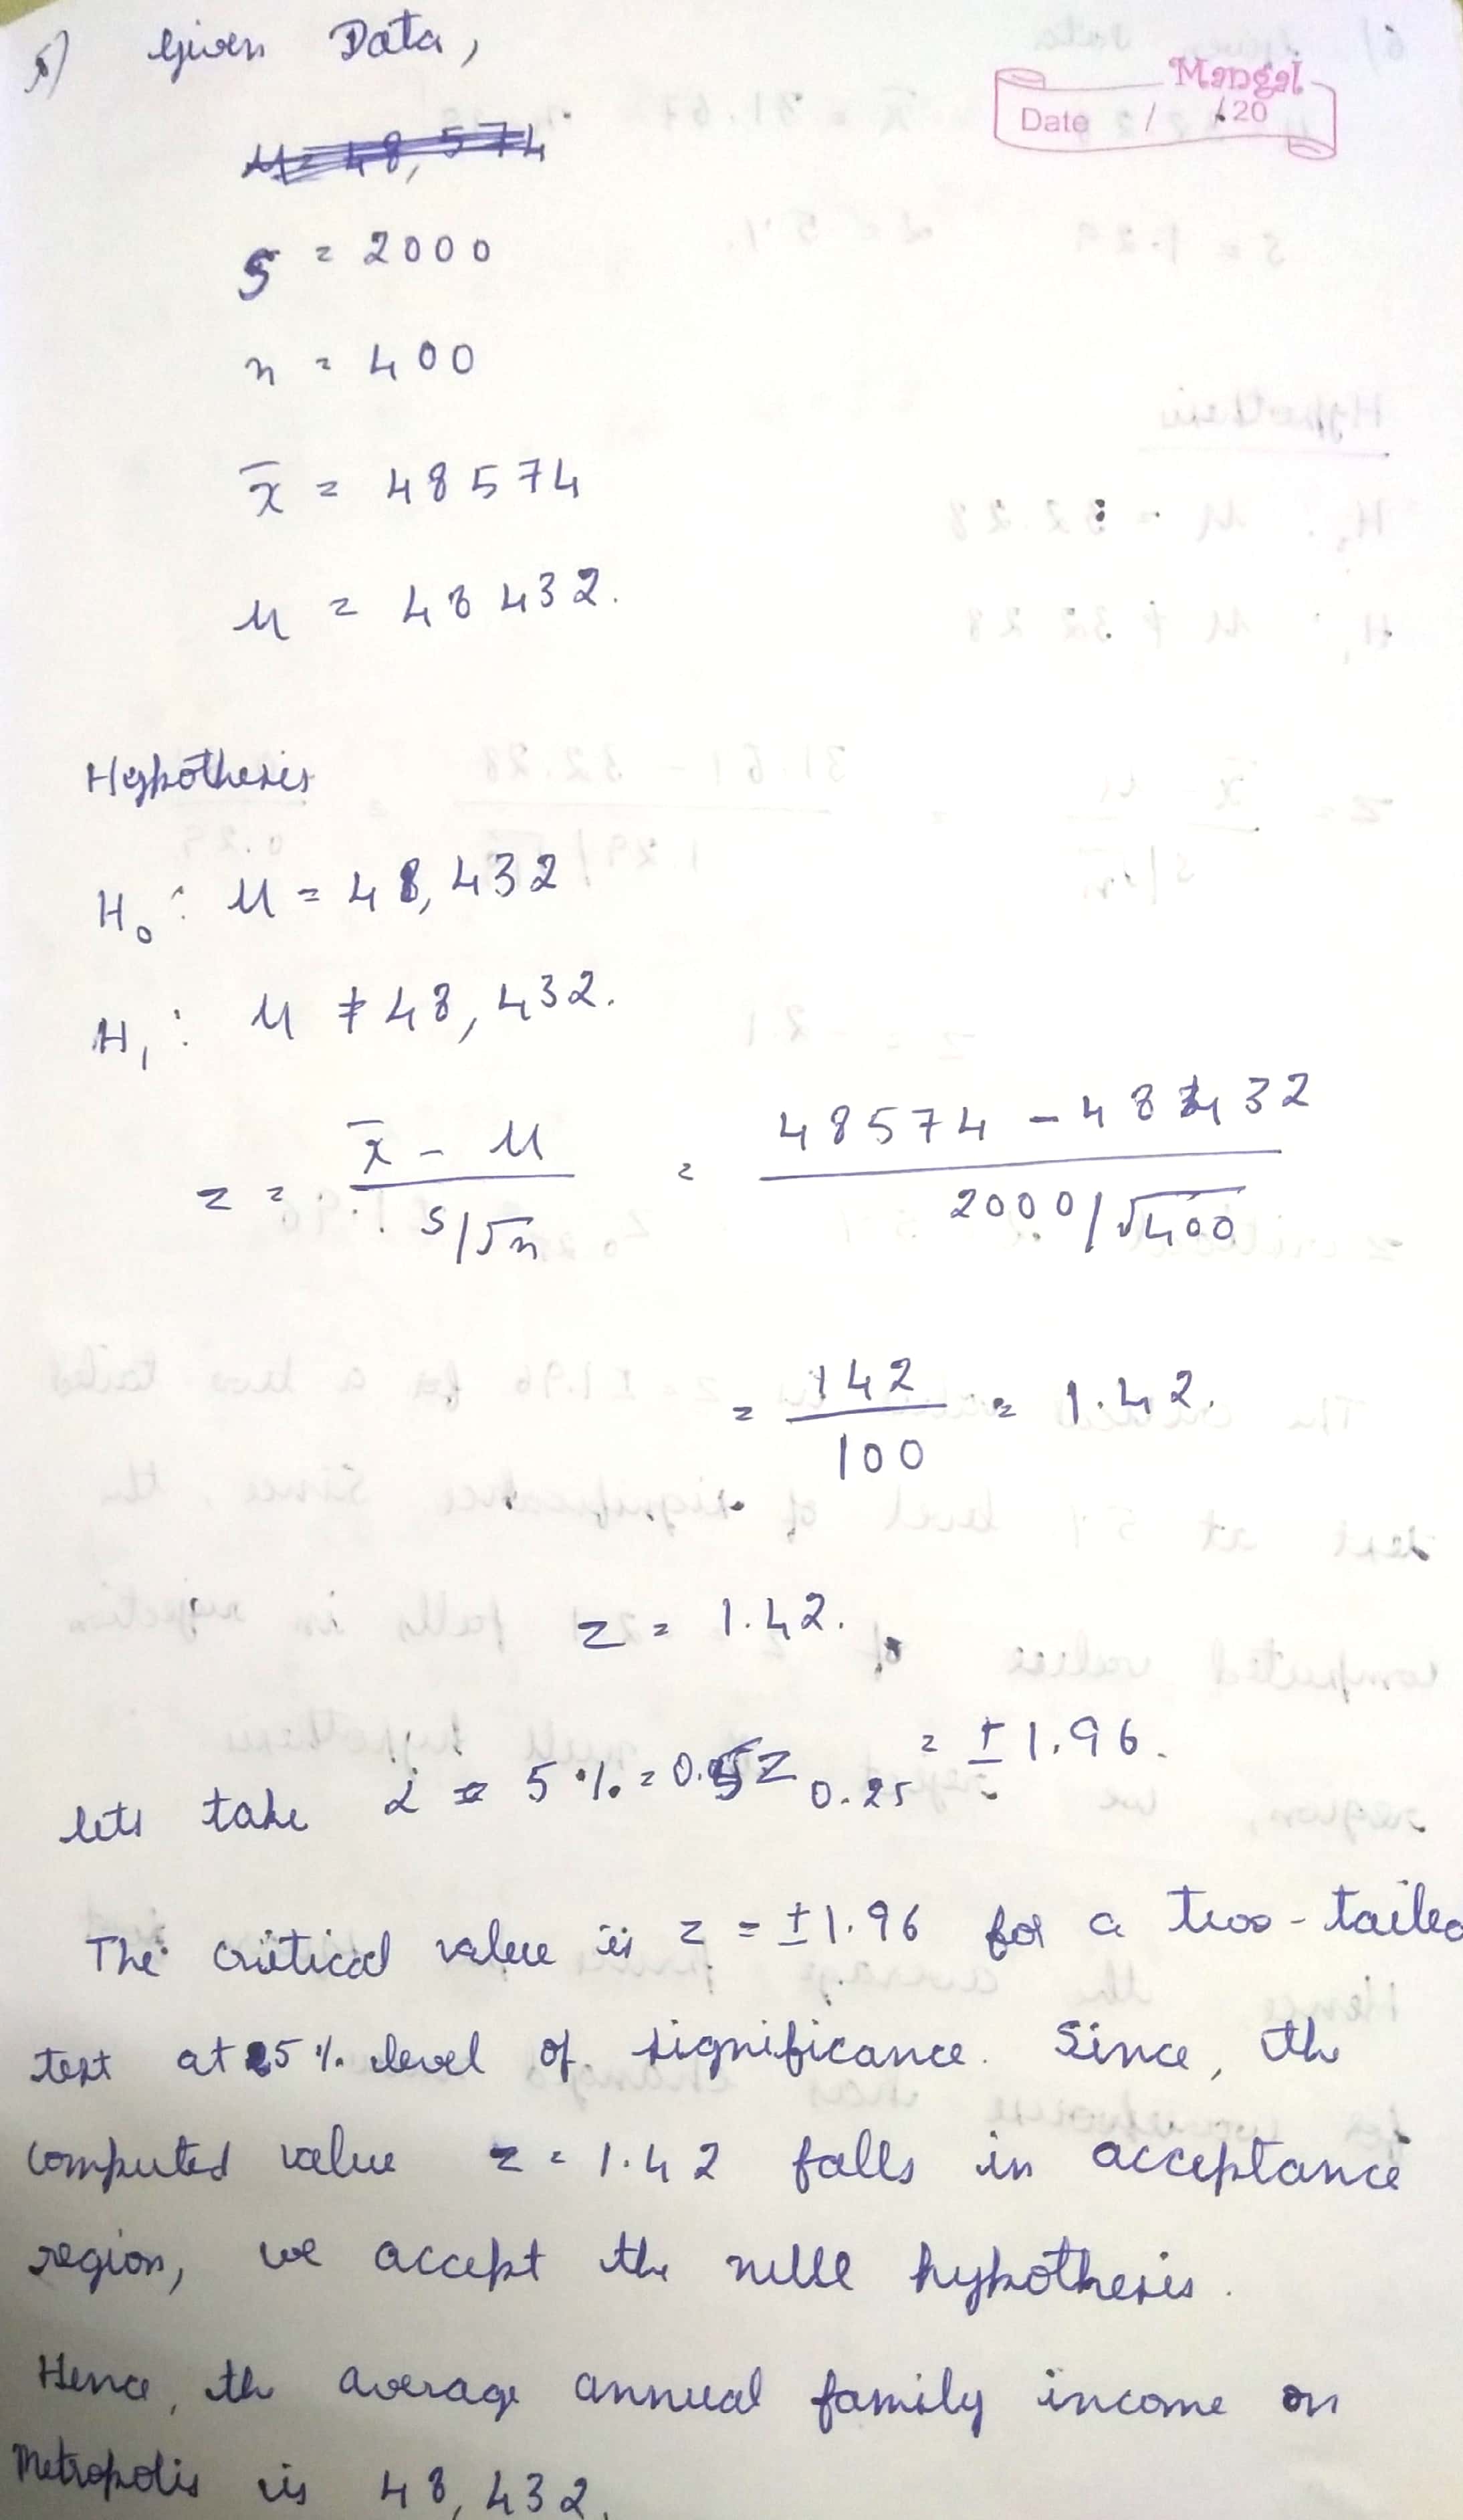 5) Given Data,
Mangal
Date / /20
S = 2000
n = 400
x̄ = 48574
μ = 48432.
Hypothesis
H₀ : μ = 48,432
H₁ : μ ≠ 48,432.
z = x̄ - μ / s/√n = 48574 - 48432 / 2000/√400
= 142/100 = 1.42.
z = 1.42.
lets take α = 5% = 0.05 z 0.25 = ± 1.96.
The critical value is z = ±1.96 for a two-tailed
test at 5% level of significance. Since, the
computed value z = 1.42 falls in acceptance
region, we accept the null hypothesis.
Hence, the average annual family income on
Metropolis is 48,432.